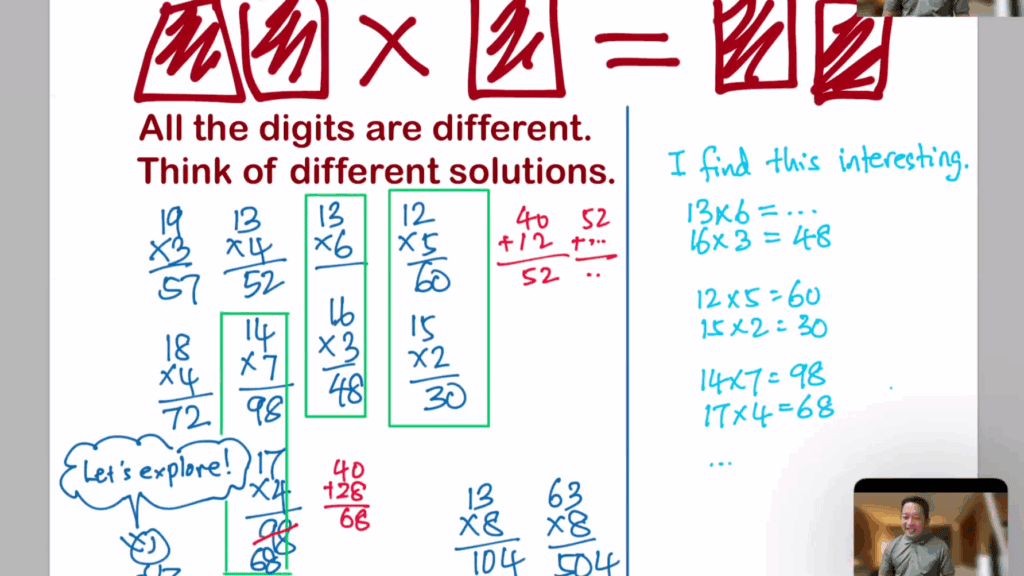 × =
All the digits are different.
Think of different solutions.
19
×3
57
13
×4
52
13
×6
12
×5
60
40
+12
52
52
+...
..
18
×4
72
14
×7
98
16
×3
48
15
×2
30
Let's explore!
17
×4
98
68
40
+28
68
13
×8
104
63
×8
504
I find this interesting.
13×6 = ...
16×3 = 48
12×5 = 60
15×2 = 30
14×7 = 98
17×4 = 68
...